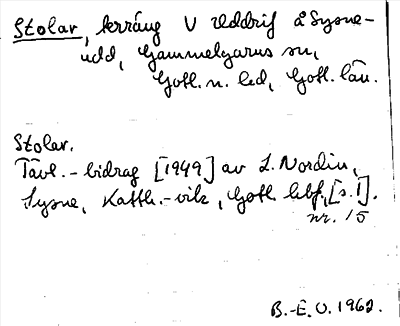 Stolar, terräng V Uddrif å Sysne-
udd, Gammelgarns sn,
Gotl. n. hd, Gotl. län.
Stolar.
Tävl.-bidrag [1949] av L. Nordin,
Sysne, Katth.-vik, Gotl. hbf, [s.1].
nr. 15
B.-E. O. 1962.